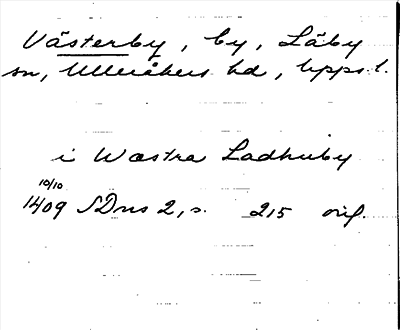 Västerby, by, Läby
sn, Ulleråkers hd, Upps. l.
i Wæstra Ladhuby
10/10
1409 SDns 2, s. 215 orig.